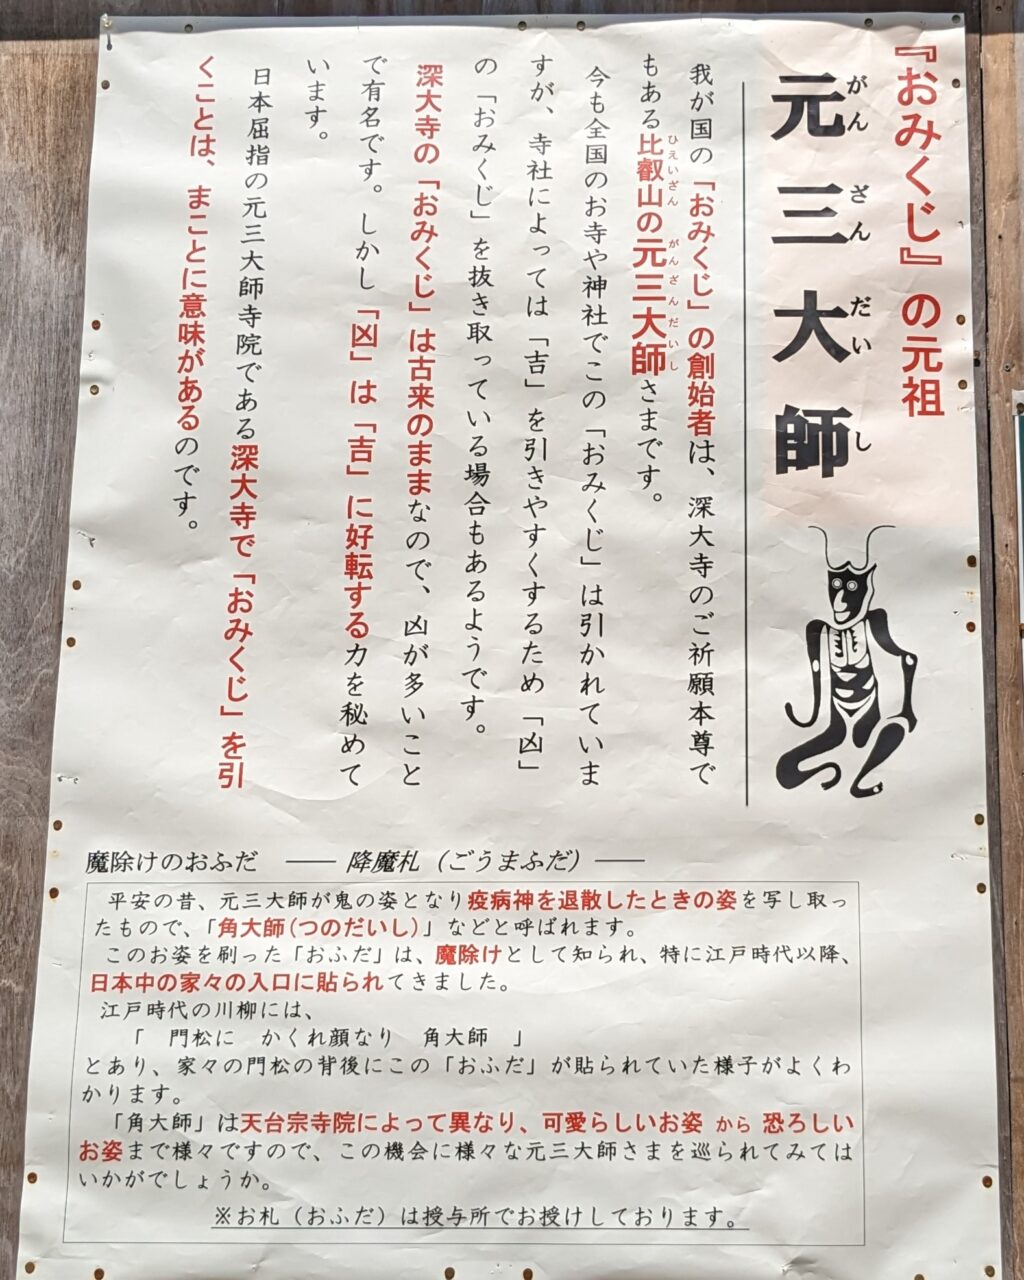 『おみくじ』の元祖
元三大師
がんざんだいし
我が国の「おみくじ」の創始者は、深大寺のご祈願本尊で
もある比叡山の元三大師さまです。
ひえいざん がんざんだいし
今も全国のお寺や神社でこの「おみくじ」は引かれていま
すが、寺社によっては「吉」を引きやすくするため「凶」
の「おみくじ」を抜き取っている場合もあるようです。
深大寺の「おみくじ」は古来のままなので、凶が多いこと
で有名です。しかし「凶」は「吉」に好転する力を秘めて
います。
日本屈指の元三大師寺院である深大寺で「おみくじ」を引
くことは、まことに意味があるのです。
魔除けのおふだ ―― 降魔札（ごうまふだ）――
平安の昔、元三大師が鬼の姿となり疫病神を退散したときの姿を写し取っ
たもので、「角大師（つのだいし）」などと呼ばれます。
このお姿を刷った「おふだ」は、魔除けとして知られ、特に江戸時代以降、
日本中の家々の入口に貼られてきました。
江戸時代の川柳には、
「 門松に かくれ顔なり 角大師 」
とあり、家々の門松の背後にこの「おふだ」が貼られていた様子がよくわ
かります。
「角大師」は天台宗寺院によって異なり、可愛らしいお姿 から 恐ろしい
お姿まで様々ですので、この機会に様々な元三大師さまを巡られてみては
いかがでしょうか。
※お札（おふだ）は授与所でお授けしております。